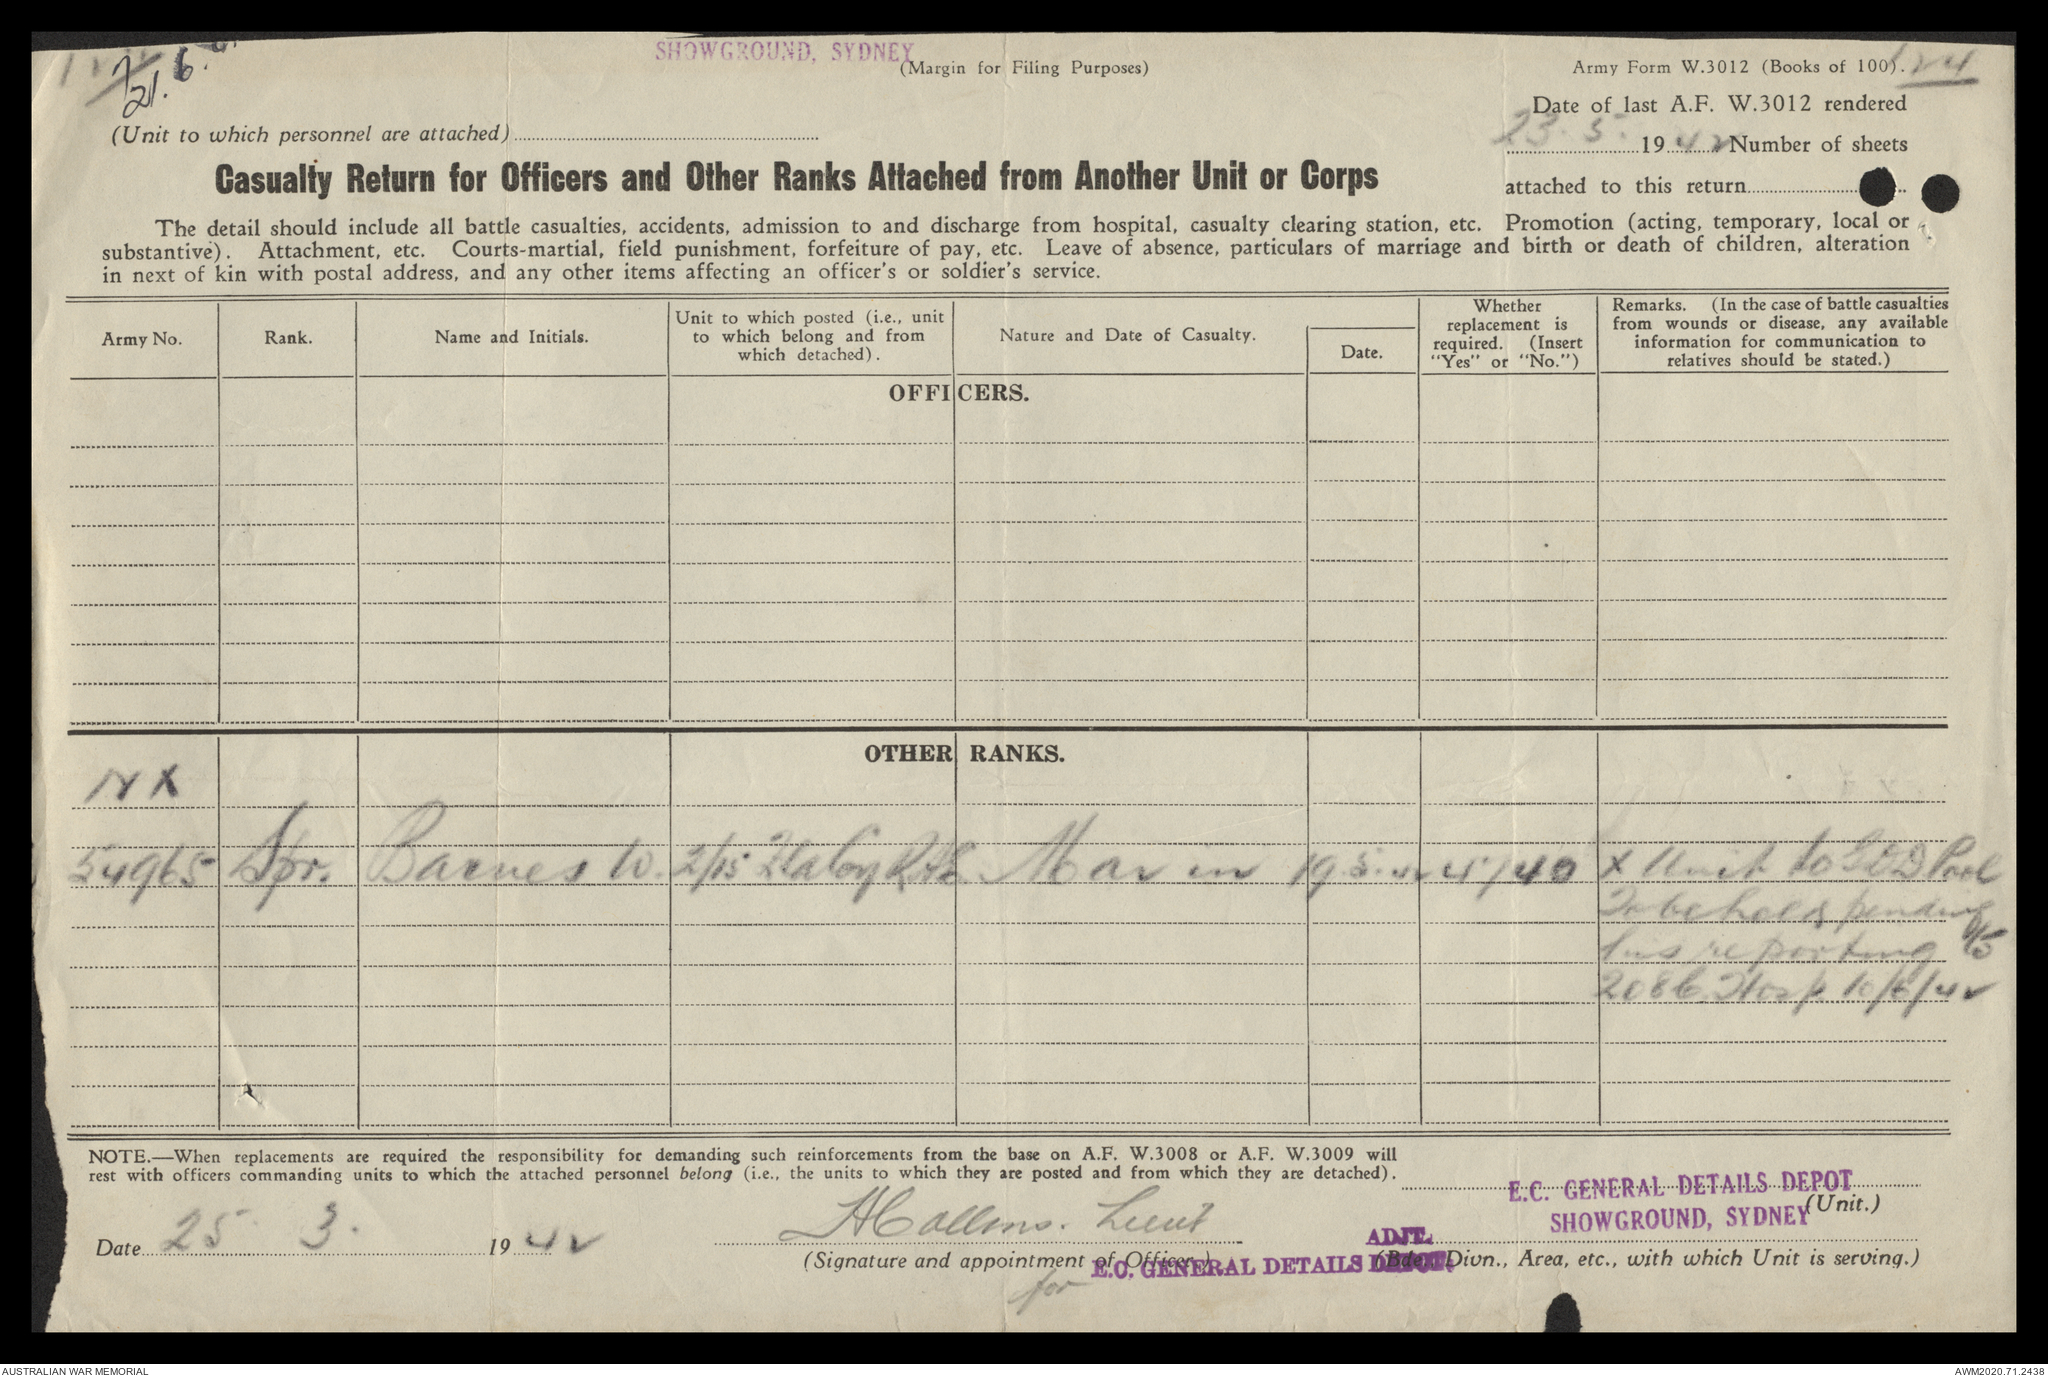 SHOWGROUND, SYDNEY
(Margin for Filing Purposes)
Army Form W.3012 (Books of 100).
Date of last A.F. W.3012 rendered
(Unit to which personnel are attached)
23. 5. 1942 Number of sheets
attached to this return
Casualty Return for Officers and Other Ranks Attached from Another Unit or Corps
The detail should include all battle casualties, accidents, admission to and discharge from hospital, casualty clearing station, etc. Promotion (acting, temporary, local or
substantive). Attachment, etc. Courts-martial, field punishment, forfeiture of pay, etc. Leave of absence, particulars of marriage and birth or death of children, alteration
in next of kin with postal address, and any other items affecting an officer's or soldier's service.
Army No.
Rank.
Name and Initials.
Unit to which posted (i.e., unit
to which belong and from
which detached).
Nature and Date of Casualty.
Date.
Whether
replacement is
required. (Insert
"Yes" or "No.")
Remarks. (In the case of battle casualties
from wounds or disease, any available
information for communication to
relatives should be stated.)
OFFICERS.
OTHER RANKS.
NX
54965 Spr. Barnes W. 2/15 Mar in 19.5.42 45/40 X Unit to GDD Pool
To be held pending
reporting
208 Hosp. 10/6/42
NOTE.—When replacements are required the responsibility for demanding such reinforcements from the base on A.F. W.3008 or A.F. W.3009 will
rest with officers commanding units to which the attached personnel belong (i.e., the units to which they are posted and from which they are detached).
E.C. GENERAL DETAILS DEPOT
(Unit.)
SHOWGROUND, SYDNEY
Date 25 3. 1942
Collins. Lieut
ADJT.
(Signature and appointment of Officer)
(Bde., Divn., Area, etc., with which Unit is serving.)
E.C. GENERAL DETAILS DEPOT
for
AUSTRALIAN WAR MEMORIAL
AWM2020.71.2438